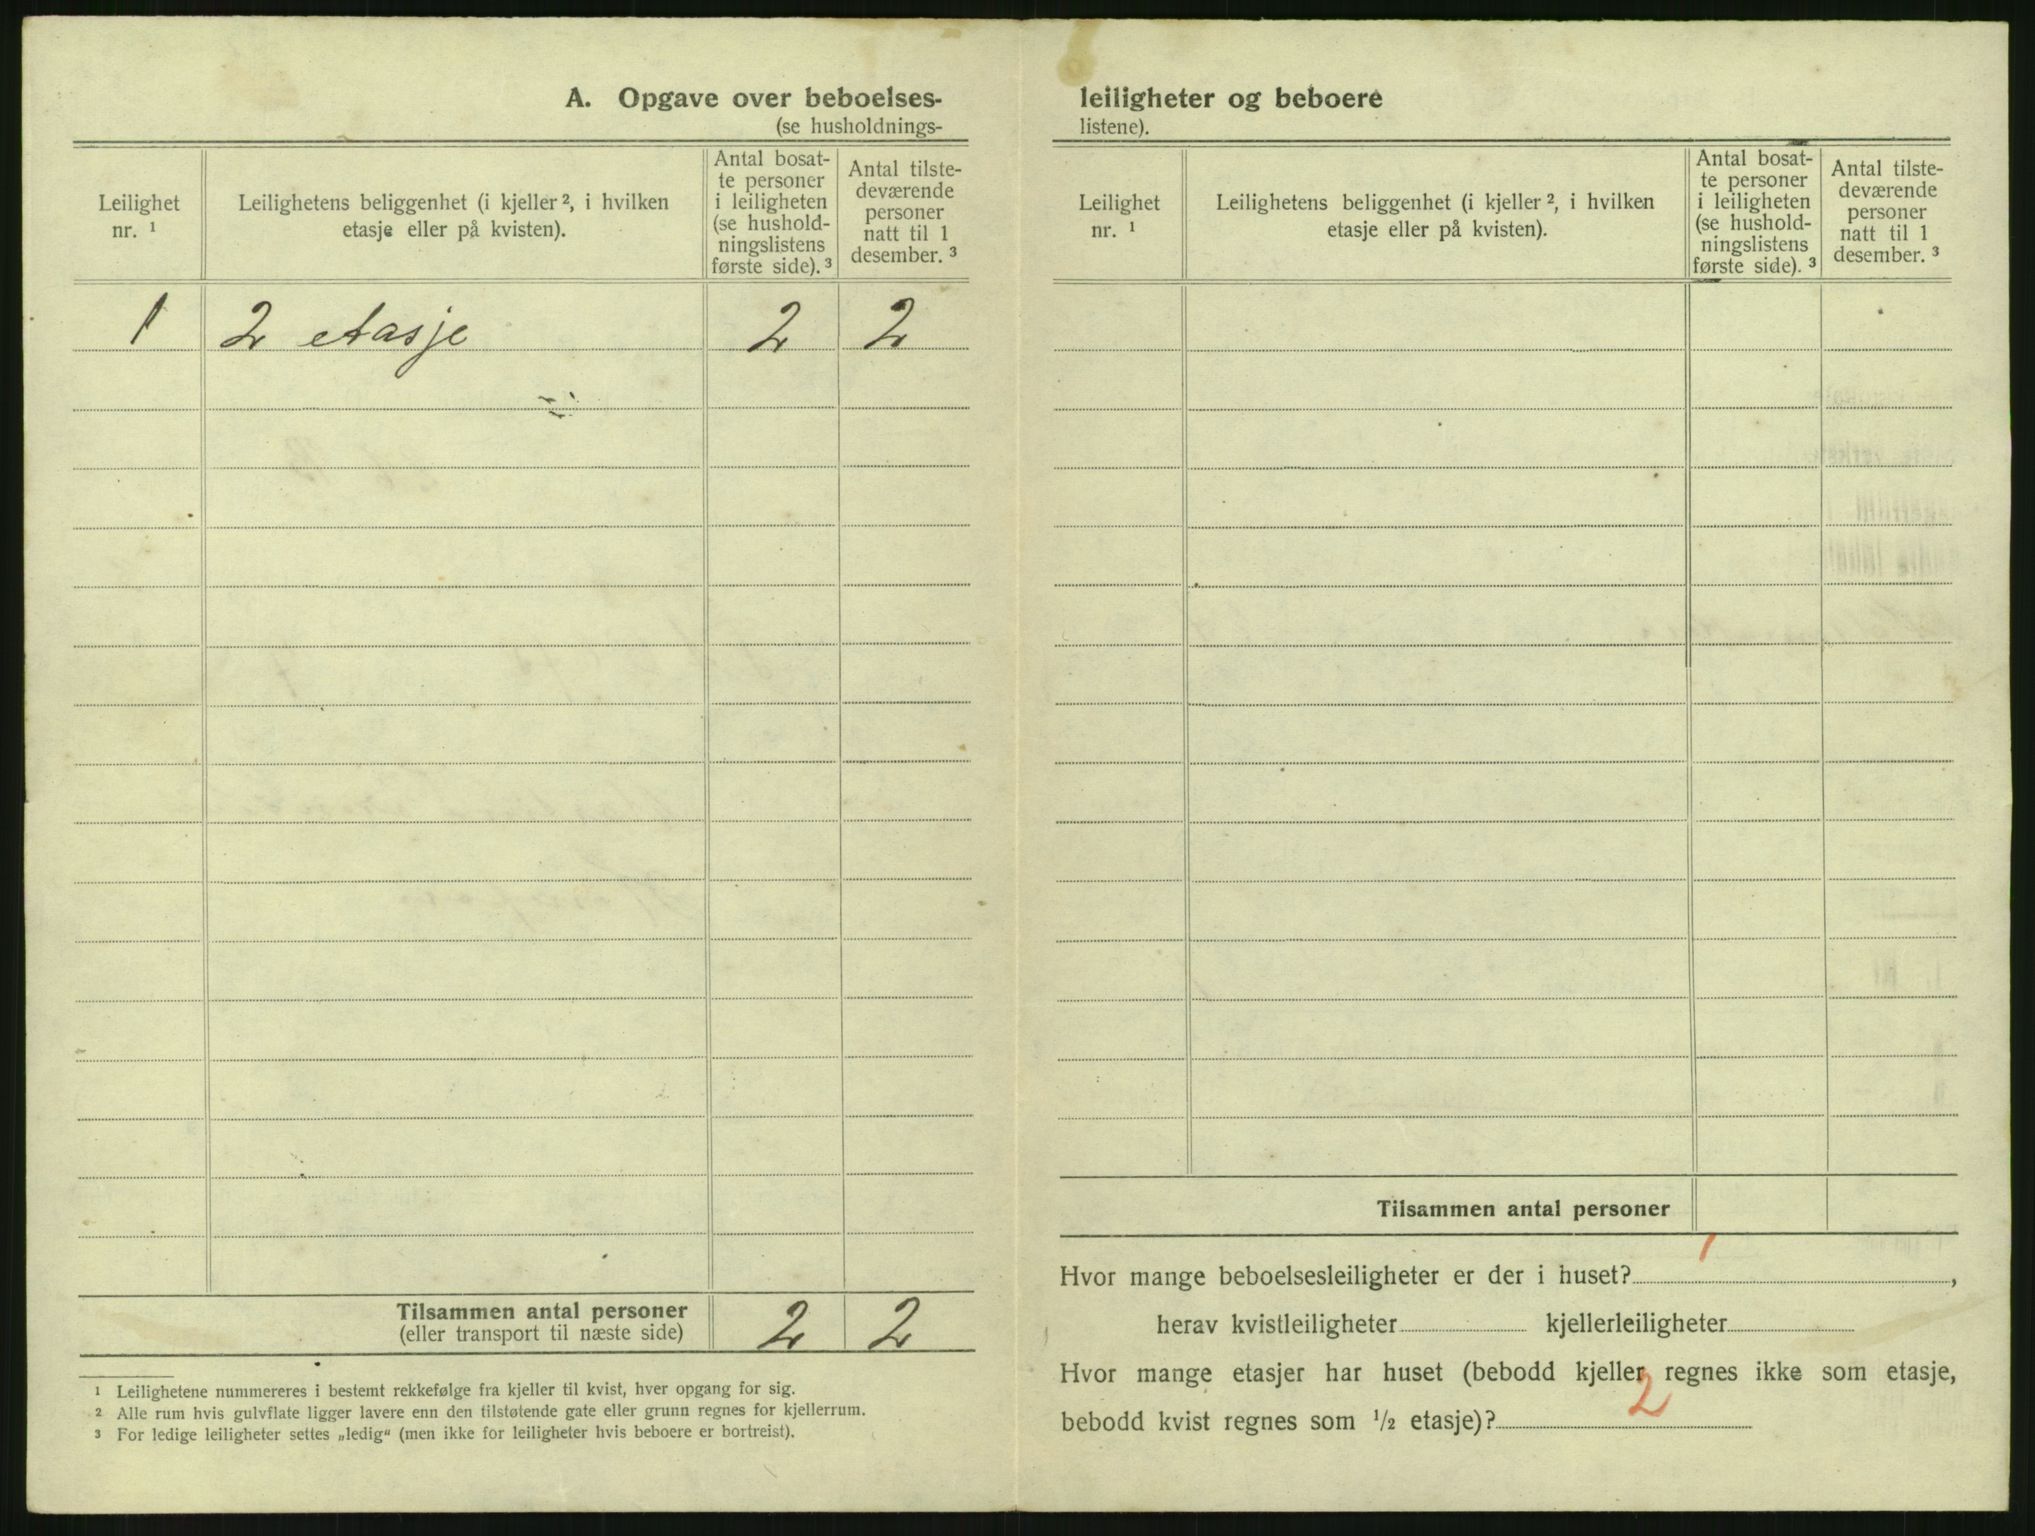 A. Opgave over beboelses-
(se husholdnings-
Leilighet
nr. ¹
Leilighetens beliggenhet (i kjeller ², i hvilken
etasje eller på kvisten).
Antal bosat-
te personer
i leiligheten
(se hushold-
ningslistens
første side). ³
Antal tilste-
deværende
personer
natt til 1
desember. ³
1 2 etasje 2 2
Tilsammen antal personer
(eller transport til næste side)
2 2
¹ Leilighetene nummereres i bestemt rekkefølge fra kjeller til kvist, hver opgang for sig.
² Alle rum hvis gulvflate ligger lavere enn den tilstøtende gate eller grunn regnes for kjellerrum.
³ For ledige leiligheter settes „ledig“ (men ikke for leiligheter hvis beboere er bortreist).
leiligheter og beboere
listene).
Leilighet
nr. ¹
Leilighetens beliggenhet (i kjeller ², i hvilken
etasje eller på kvisten).
Antal bosat-
te personer
i leiligheten
(se hushold-
ningslistens
første side). ³
Antal tilste-
deværende
personer
natt til 1
desember. ³
Tilsammen antal personer
Hvor mange beboelsesleiligheter er der i huset? 1,
herav kvistleiligheter kjellerleiligheter
Hvor mange etasjer har huset (bebodd kjeller regnes ikke som etasje,
bebodd kvist regnes som ½ etasje)? 2